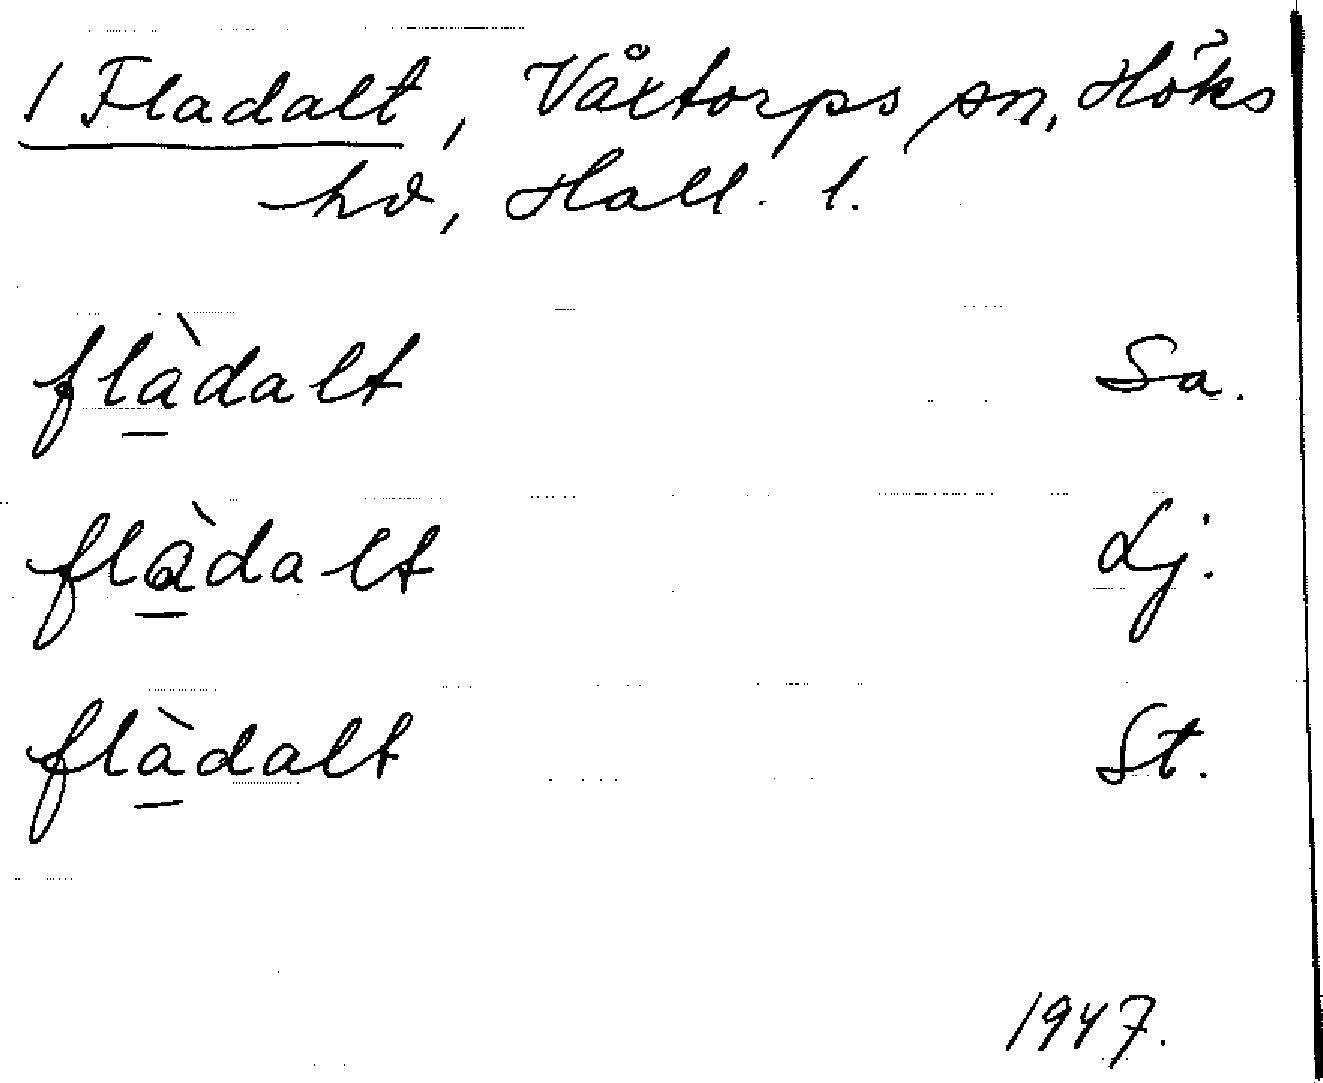 1 Fladalt, Våxtorps sn, Höks
hd, Hall. l.
flàdalt Sa.
flàdalt Lj.
flàdalt St.
1947.